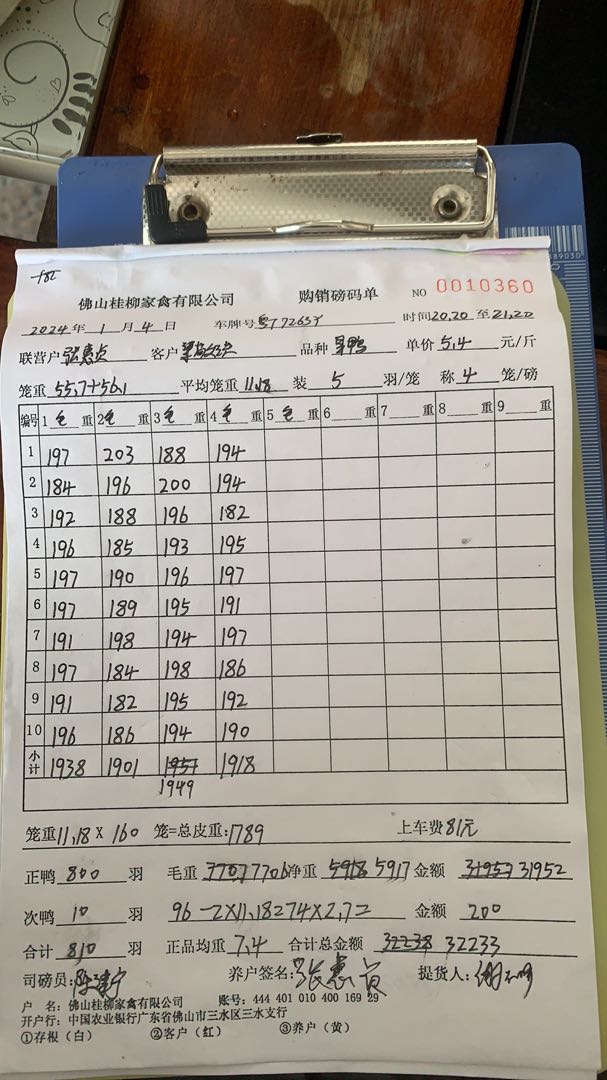 佛山桂柳家禽有限公司 购销磅码单 NO 0010360
2024年 1月 4日 车牌号 粤T7265Y 时间20,20至21,20
联营户 张惠贞 客户 品种 旱鸭 单价 5,4 元/斤
笼重 55,7+56,1 平均笼重 11,18 装 5 羽/笼 称 4 笼/磅
编号 1 毛 重 2 毛 重 3 毛 重 4 毛 重 5 毛 重 6 重 7 重 8 重 9 重
1 197 203 188 194
2 184 196 200 194
3 192 188 196 182
4 196 185 193 195
5 197 190 196 197
6 197 189 195 191
7 191 198 194 197
8 197 184 198 186
9 191 182 195 192
10 196 186 194 190
小计 1938 1901 1957 1918
1949
笼重 11,18 X 160 笼=总皮重: 1789 上车费 81元
正鸭 800 羽 毛重 7707 7706 净重 5918 5917 金额 31957 31952
次鸭 10 羽 96-2X11,18=74X2,7= 金额 200
合计 810 羽 正品均重 7,4 合计总金额 32238 32233
司磅员: 养户签名: 张惠贞 提货人:
户 名: 佛山桂柳家禽有限公司 账号: 444 401 010 400 169 29
开户行: 中国农业银行广东省佛山市三水区三水支行
①存根(白) ②客户(红) ③养户(黄)